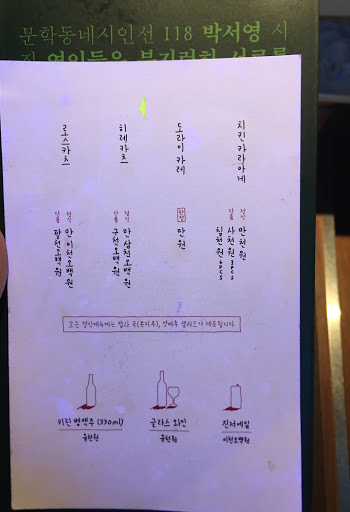 문학동네시인선 118 박서영 시
집 연인들은 부지런히 서로를
로스카츠
정식 만이천오백원
단품 팔천오백원
히레카츠
정식 만삼천오백원
단품 구천오백원
도라이카레
단품 만원
치킨카라아게
정식 만천원
단품 사천원 3pcs
칠천원 6pcs
모든 정식메뉴에는 밥과 국(톤지루), 양배추 샐러드가 제공됩니다
키린 병맥주 (330ml)
육천원
글라스 와인
육천원
진저에일
이천오백원